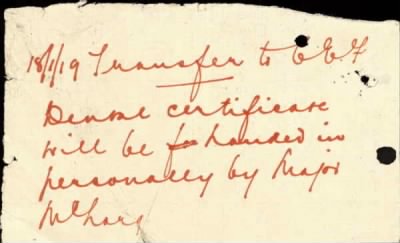 18/1/19 Transfer to E.E.F
Dental certificate
will be handed in
personally by Major